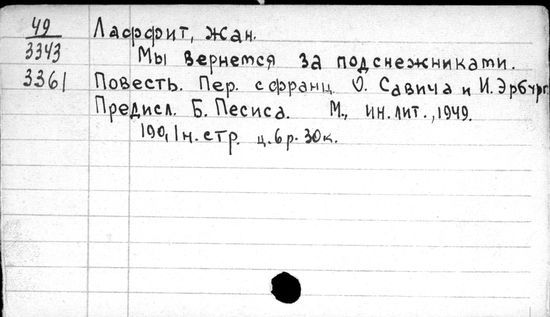 49 Лаффит, Жан.
3343 Мы вернемся за подснежниками.
3361 Повесть. Пер. с франц. О. Савича и И. Эрбург
Предисл. Б. Песиса. М., ин. лит., 1949.
190, 1 н. стр. ц. 6 р. 30 к.